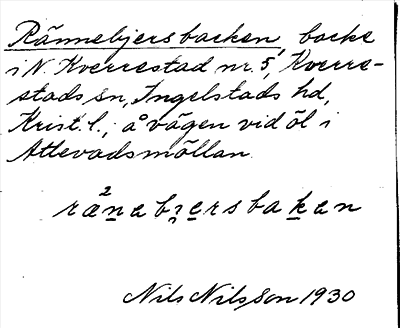 Rännebjersbacken, backe
i N. Kverrestad nr. 5, Kverre-
stads sn, Ingelstads hd,
Krist. l., å vägen vid öl i
Attevadsmöllan.
rä²nebɿersbaken
Nils Nilsson 1930